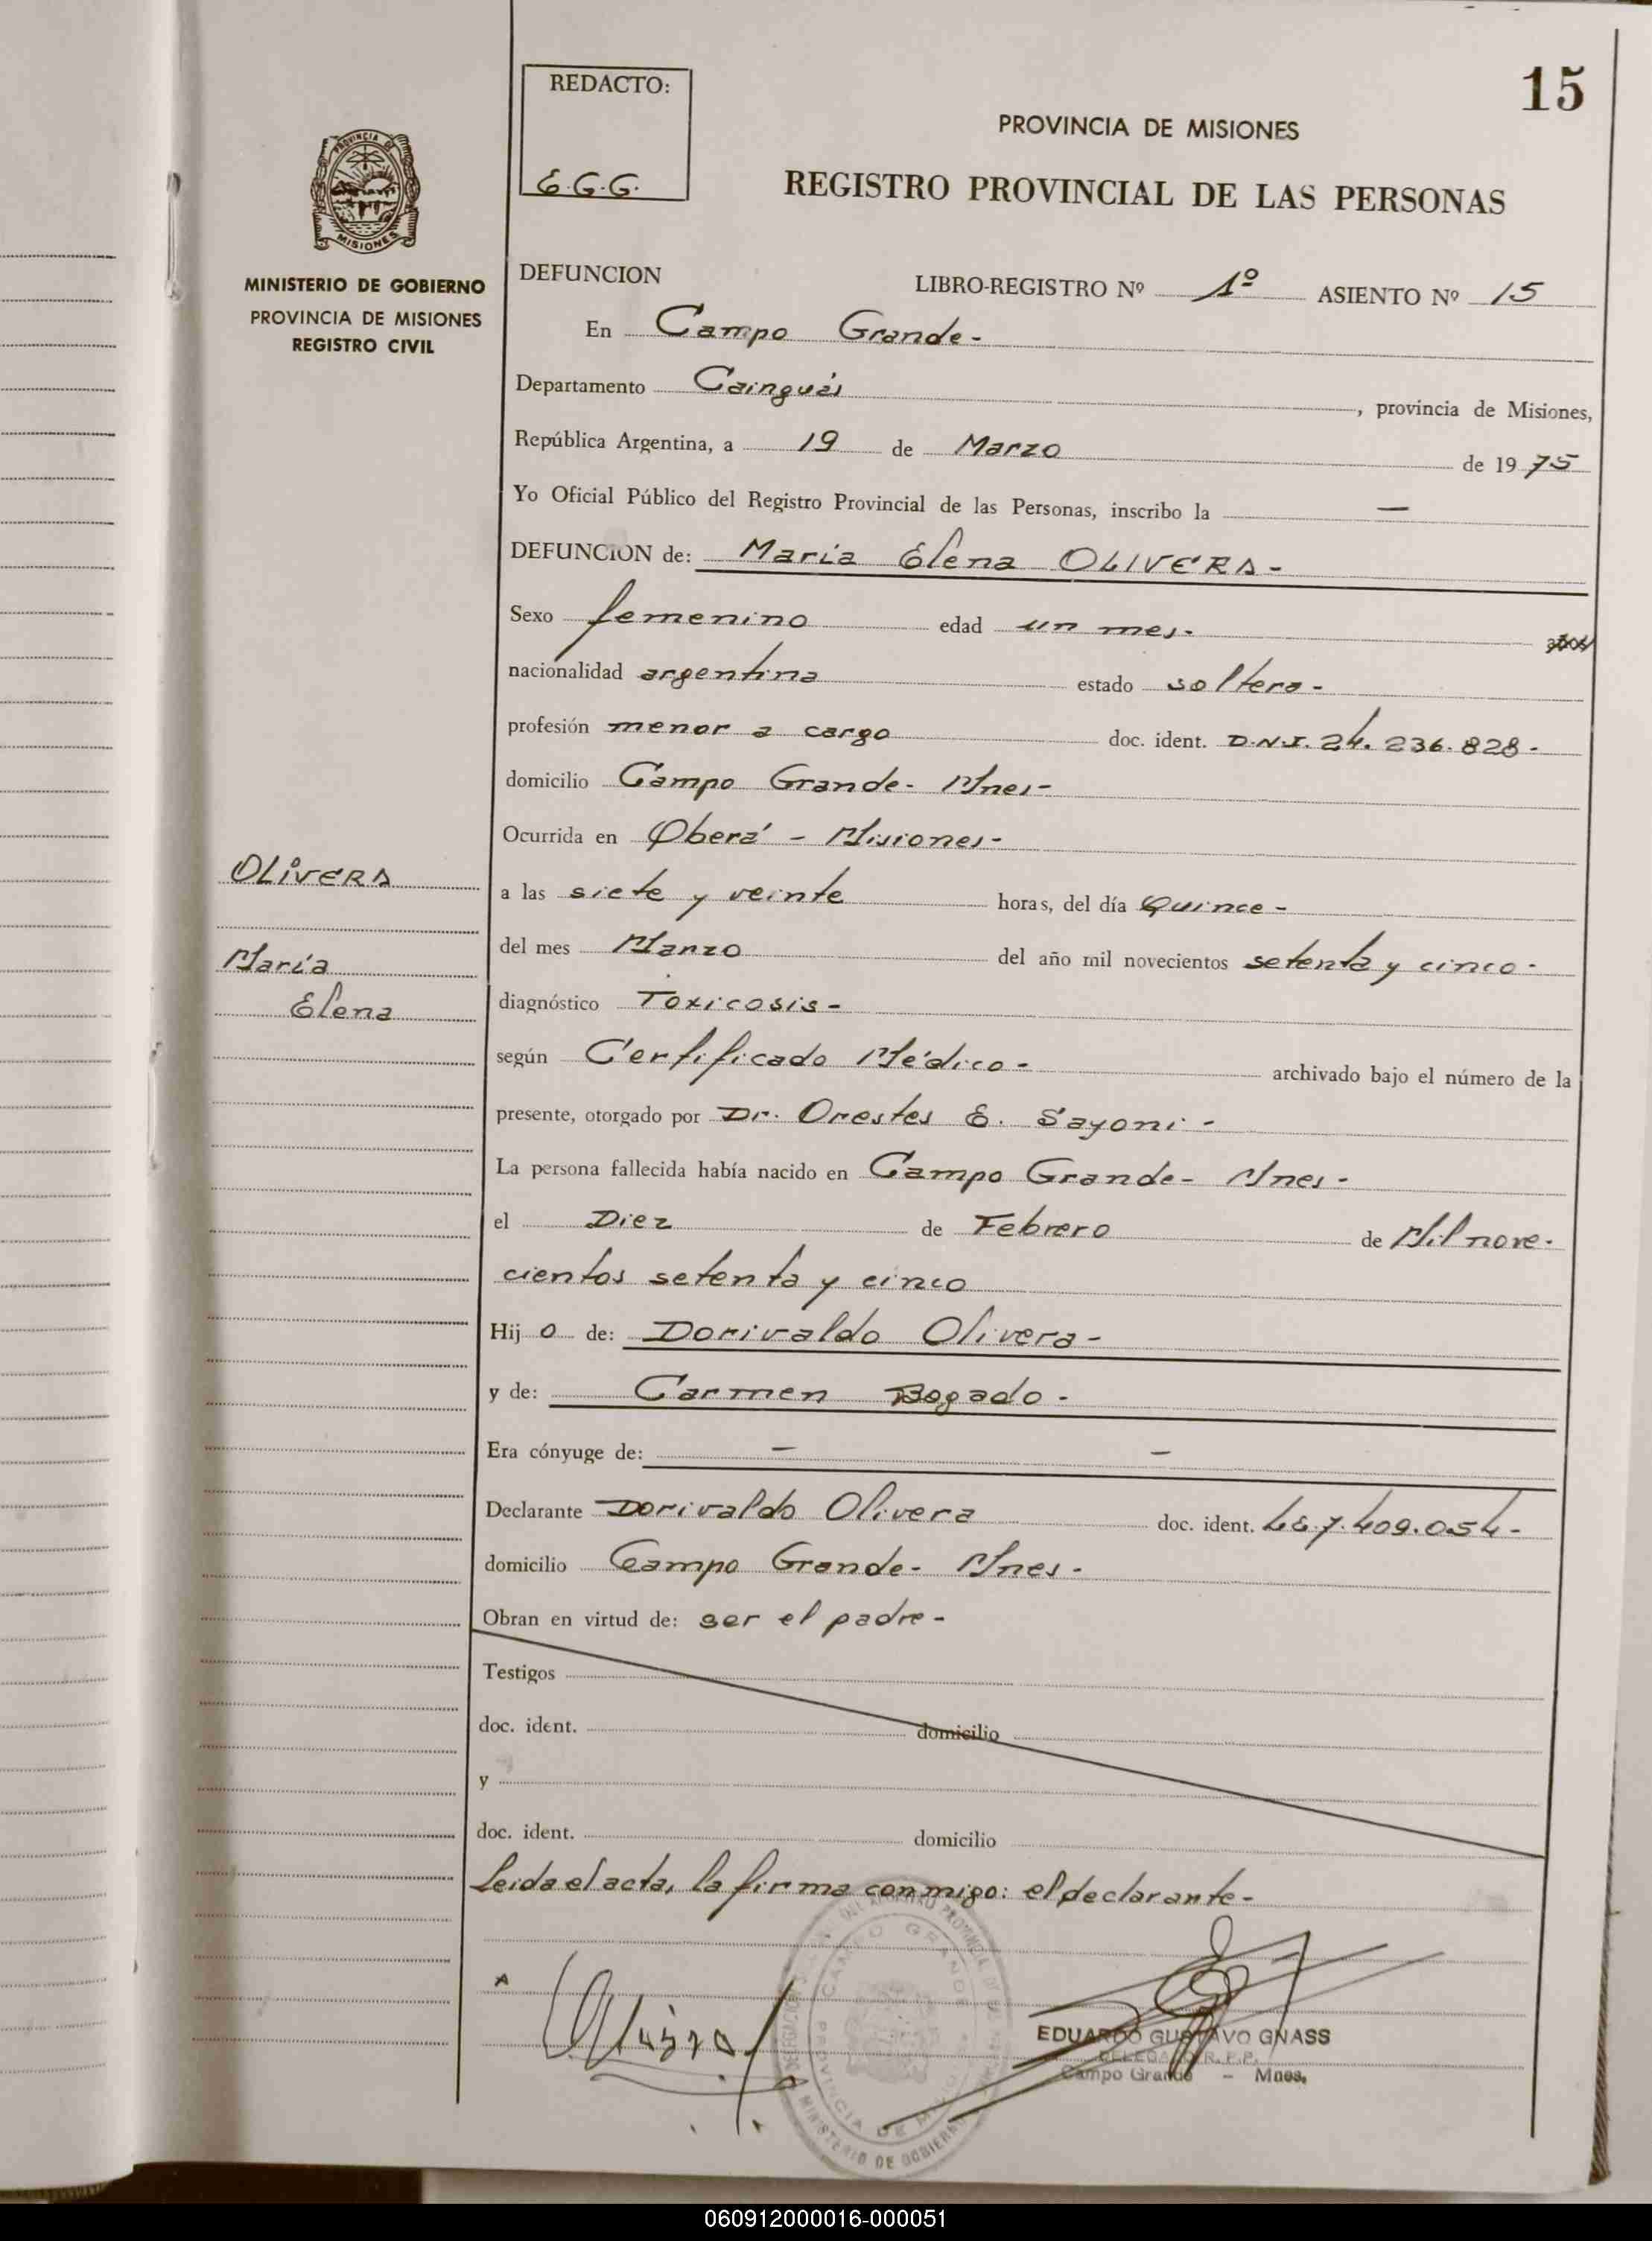 15
REDACTO:
E.G.G.
PROVINCIA DE MISIONES
REGISTRO PROVINCIAL DE LAS PERSONAS
PROVINCIA DE
MISIONES
MINISTERIO DE GOBIERNO
PROVINCIA DE MISIONES
REGISTRO CIVIL
DEFUNCION LIBRO-REGISTRO Nº 1º ASIENTO Nº 15
En Campo Grande-
Departamento Cainguás, provincia de Misiones,
República Argentina, a 19 de Marzo de 1975
Yo Oficial Público del Registro Provincial de las Personas, inscribo la —
DEFUNCION de: Maria Elena OLIVERA-
Sexo femenino edad un mes- años
nacionalidad argentina estado soltera-
profesión menor a cargo doc. ident. D.N.I. 24.236.828-
domicilio Campo Grande- Mnes-
Ocurrida en Oberá - Misiones-
OLIVERA
a las siete y veinte horas, del día Quince-
del mes Marzo del año mil novecientos setenta y cinco-
María
Elena
diagnóstico Toxicosis-
según Certificado Médico- archivado bajo el número de la
presente, otorgado por Dr. Orestes E. Sayoni-
La persona fallecida había nacido en Campo Grande- Mnes-
el Diez de Febrero de Mil nove-
cientos setenta y cinco
Hijo de: Dorivaldo Olivera-
y de: Carmen Bogado-
Era cónyuge de: — —
Declarante Dorivaldo Olivera doc. ident. L.E.7.409.054-
domicilio Campo Grande- Mnes-
Obran en virtud de: ser el padre-
Testigos
doc. ident. domicilio
y
doc. ident. domicilio
Leida el acta, la firma conmigo: el declarante-
EDUARDO GUSTAVO GNASS
DELEGADO R.P.P.
Campo Grande - Mnes.
CAMPO GRANDE
PROVINCIA DE
MINISTERIO DE GOBIERNO
060912000016-000051